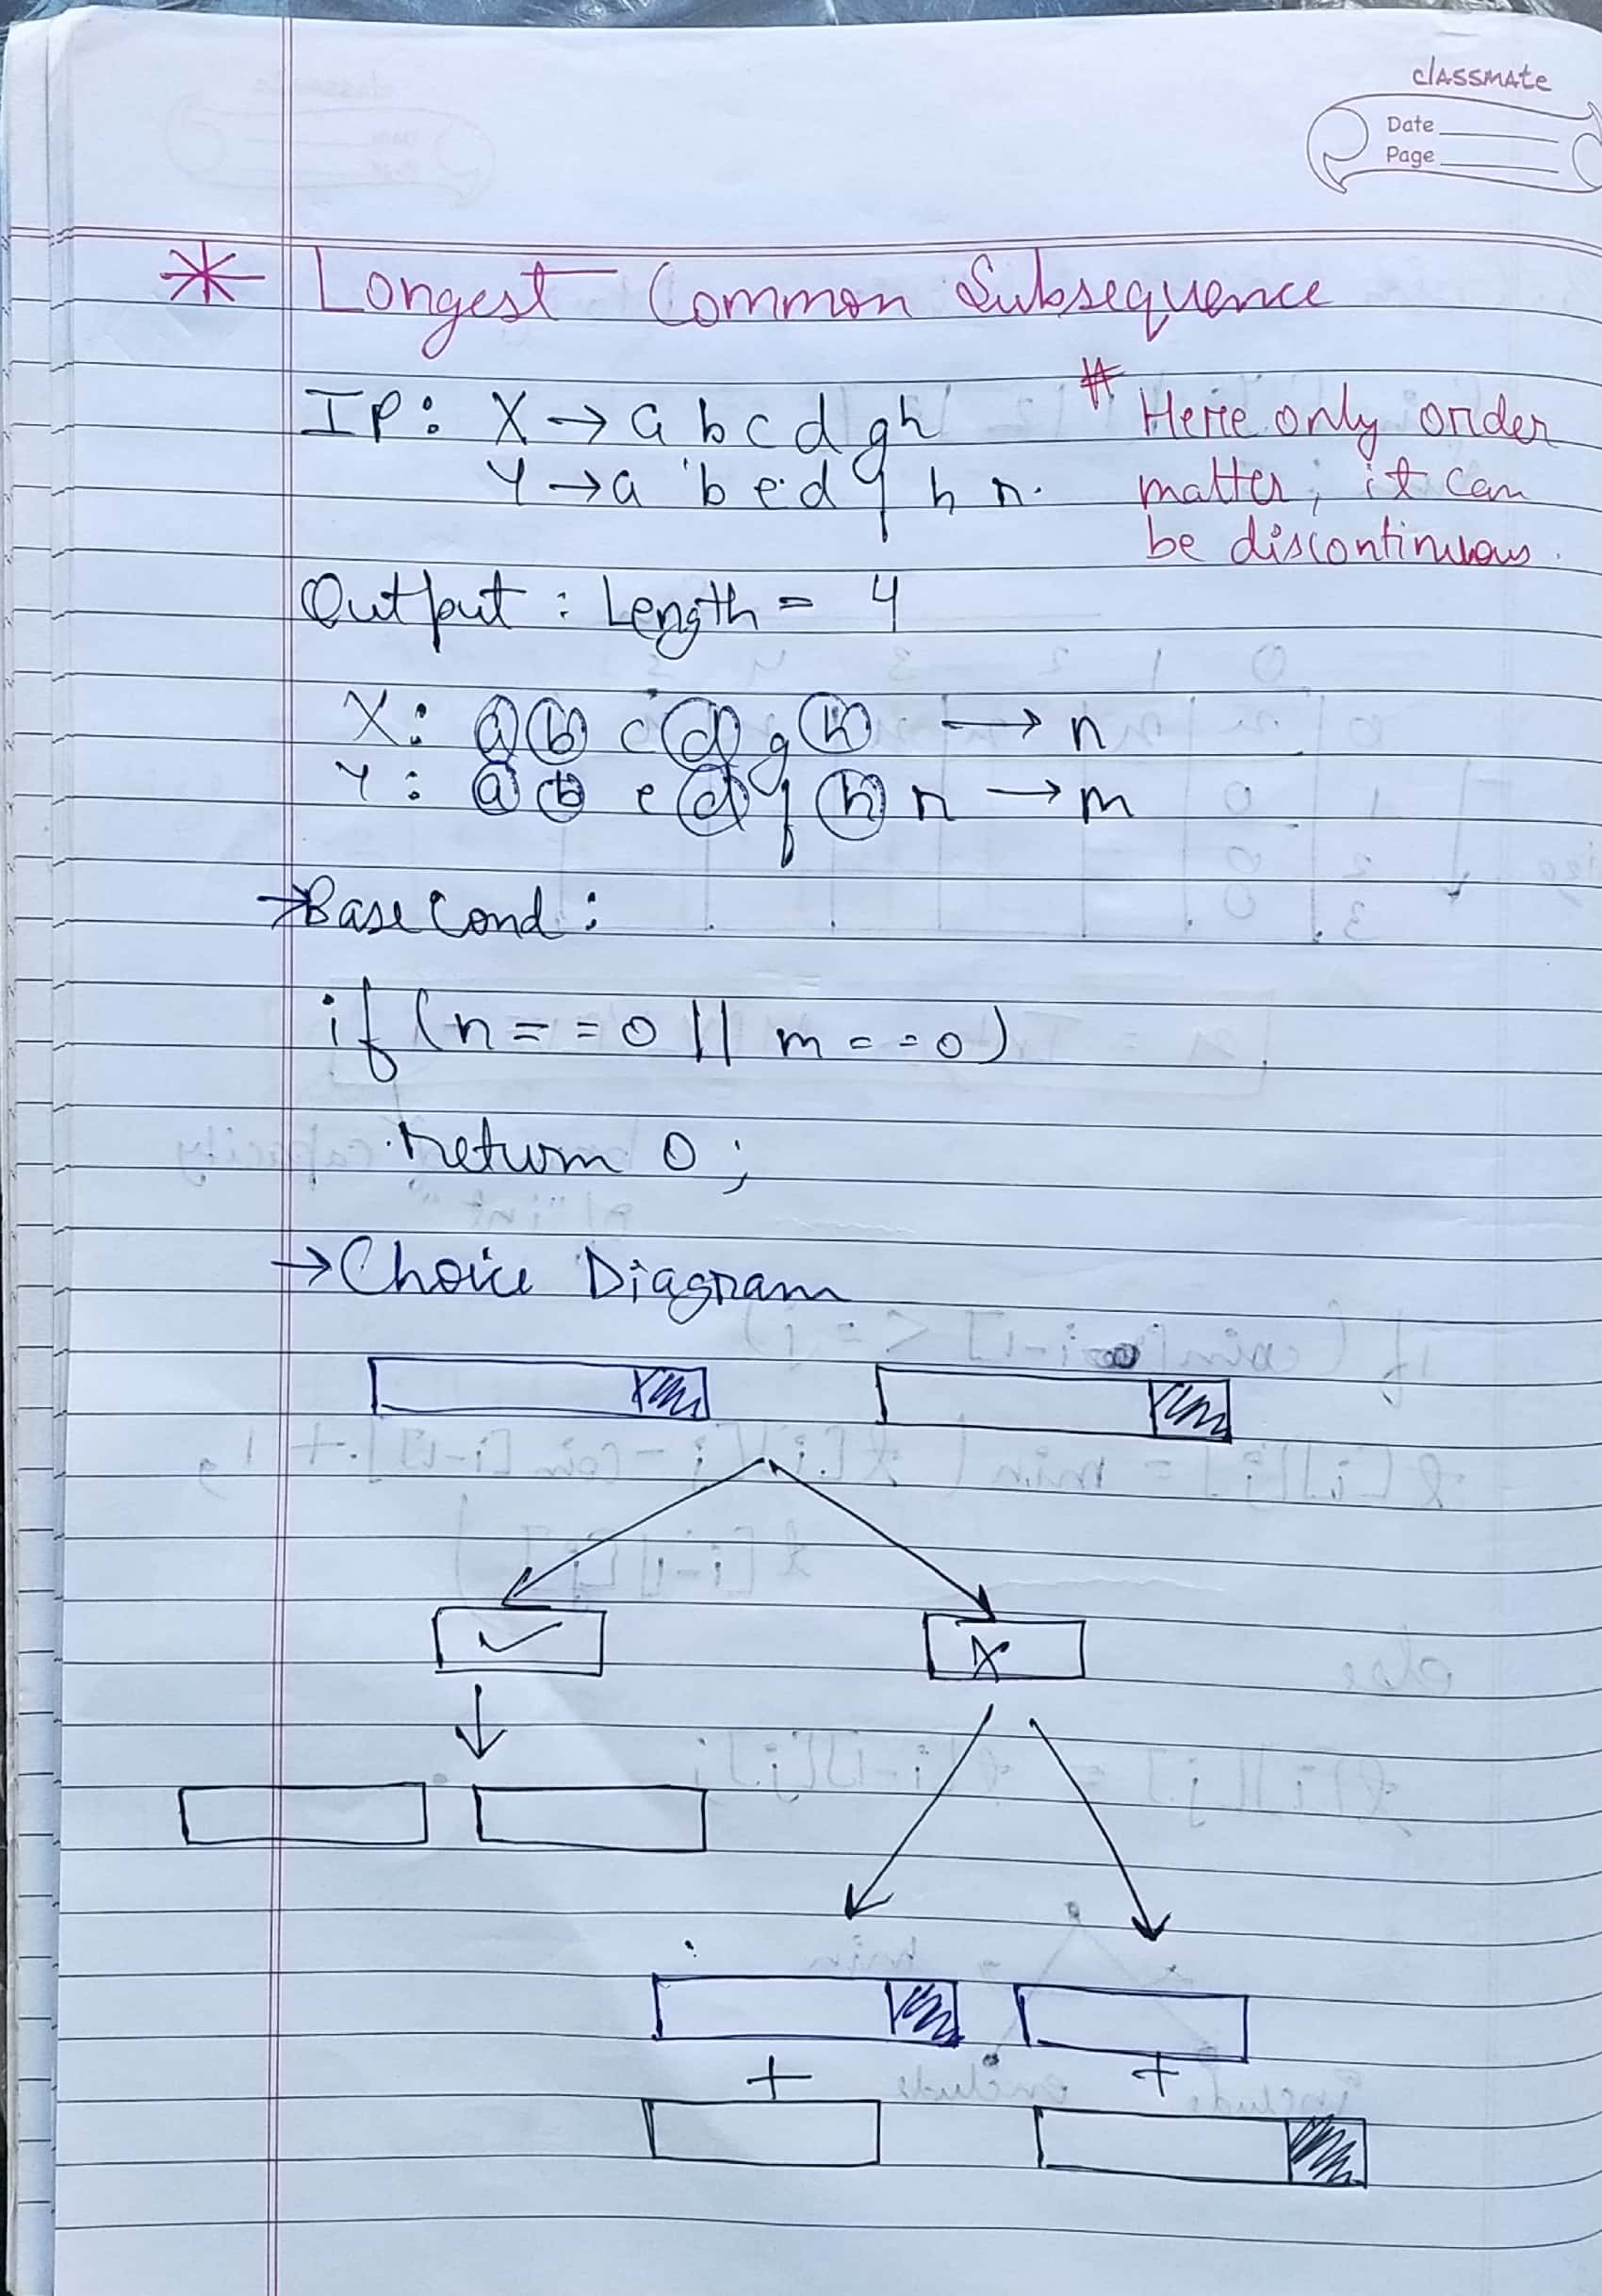 classmate
Date
Page
* Longest Common Subsequence
IP: X → a b c d g h
Y → a b e d f h n.
# Here only order
matter; it can
be discontinuous.
Output : Length = 4
X: a b c d g h → n
Y: a b e d f h n → m
→ Base Cond :
if (n = = 0 || m = = 0)
return 0 ;
→ Choice Diagram
✓ X
+ +